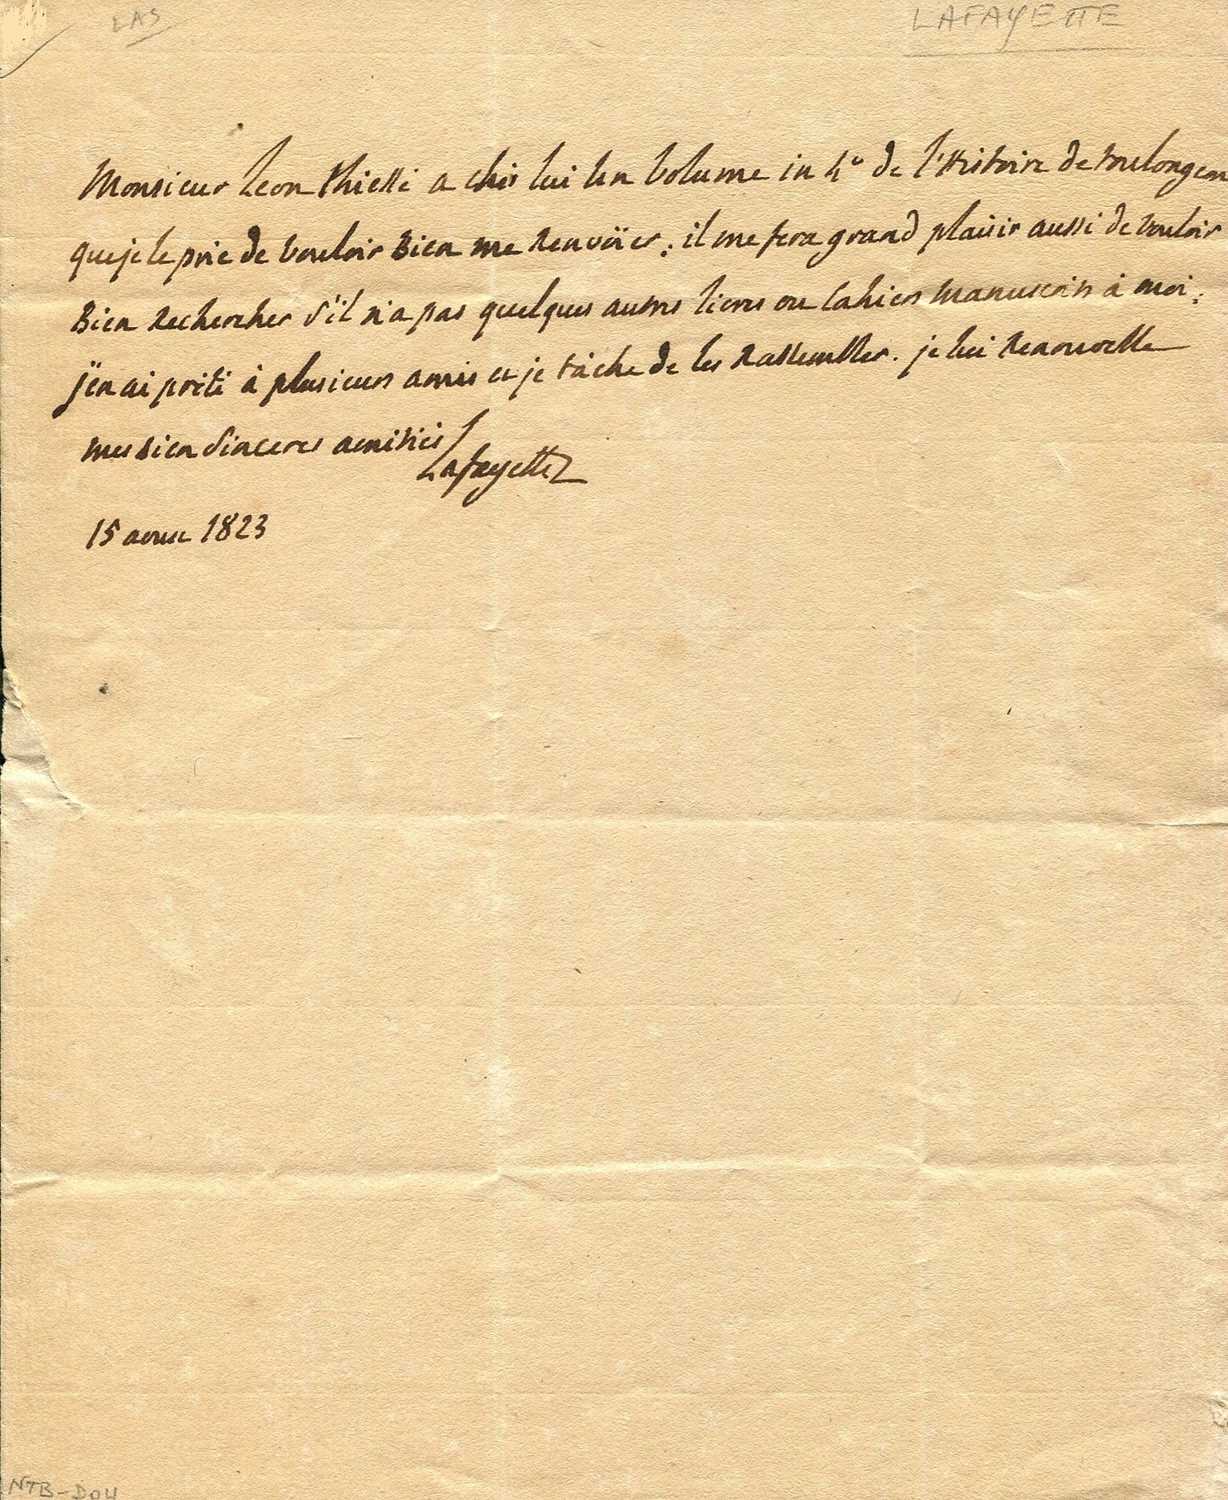 LAS
LAFAYETTE
Monsieur Leon Thiessé a chés lui un volume in 4° de l'histoire de toulongeon
que je le prie de vouloir bien me renvoïer; il me fera grand plaisir aussi de vouloir
bien rechercher s'il n'a pas quelques autres livres ou cahiers manuscrits à moi;
j'en ai prêté à plusieurs amis et je tâche de les rassembler. je lui renouvelle
mes bien sinceres amitiés
Lafayette
15 avril 1823
NTB-DOU